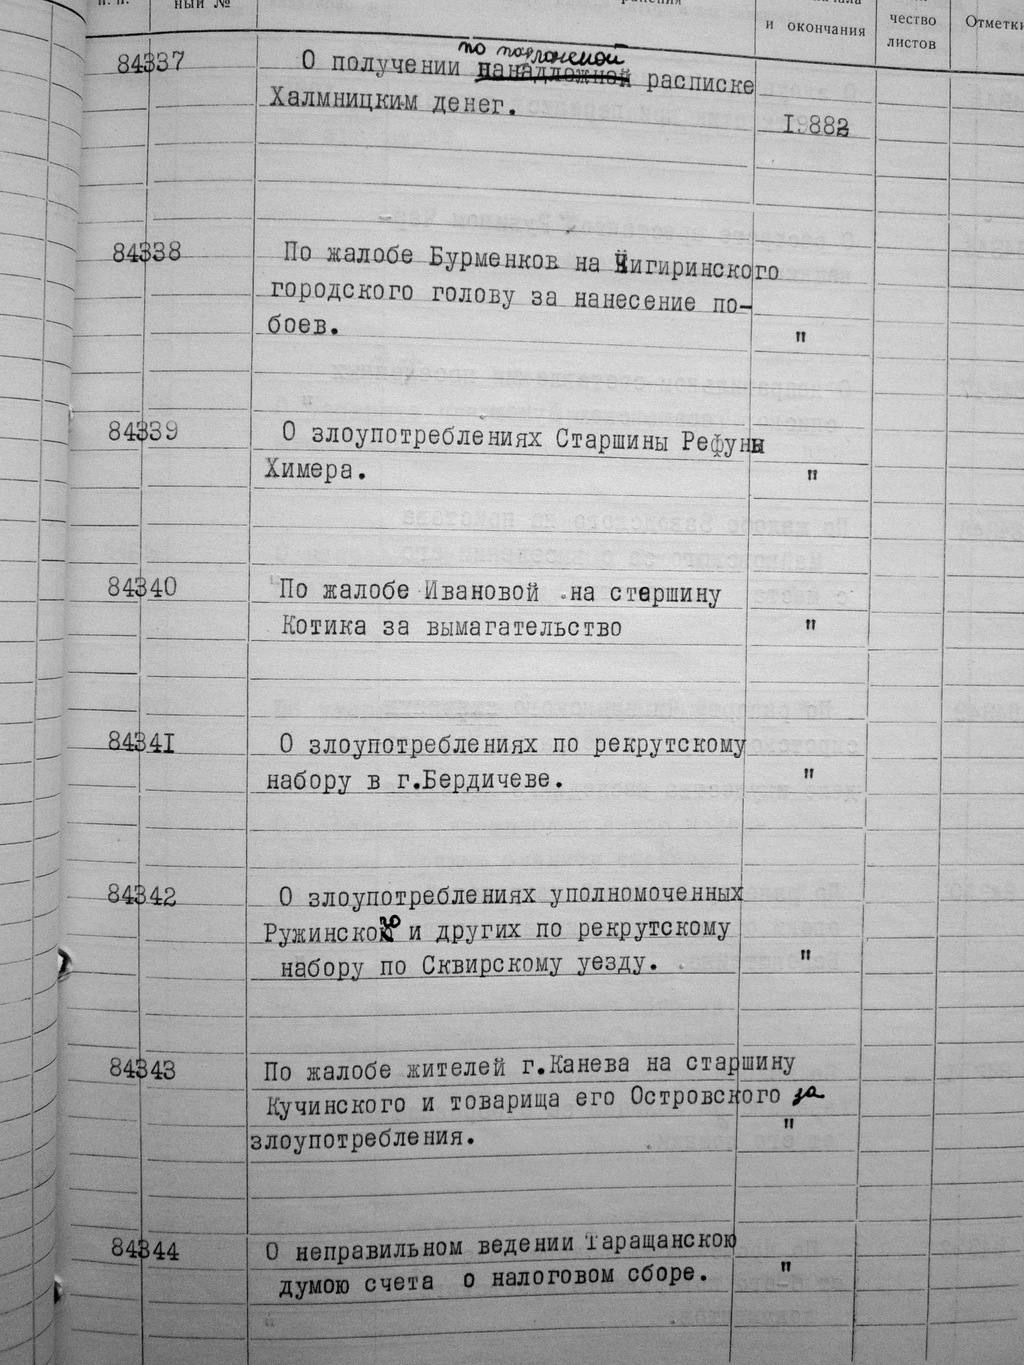 п. п.
ный №
ранения
и окончания
чество
листов
Отметки
по подложной
84337 О получении нанадложной расписке
Халмницким денег.
1882
84338 По жалобе Бурменков на Чигиринского
городского голову за нанесение по-
боев. "
84339 О злоупотреблениях Старшины Рефуны
Химера. "
84340 По жалобе Ивановой .на старшину
Котика за вымагательство "
84341 О злоупотреблениях по рекрутскому
набору в г.Бердичеве. "
84342 О злоупотреблениях уполномоченных
Ружинского и других по рекрутскому
набору по Сквирскому уезду. "
84343 По жалобе жителей г.Канева на старшину
Кучинского и товарища его Островского за
злоупотребления. "
84344 О неправильном ведении Таращанскою
думою счета о налоговом сборе. "